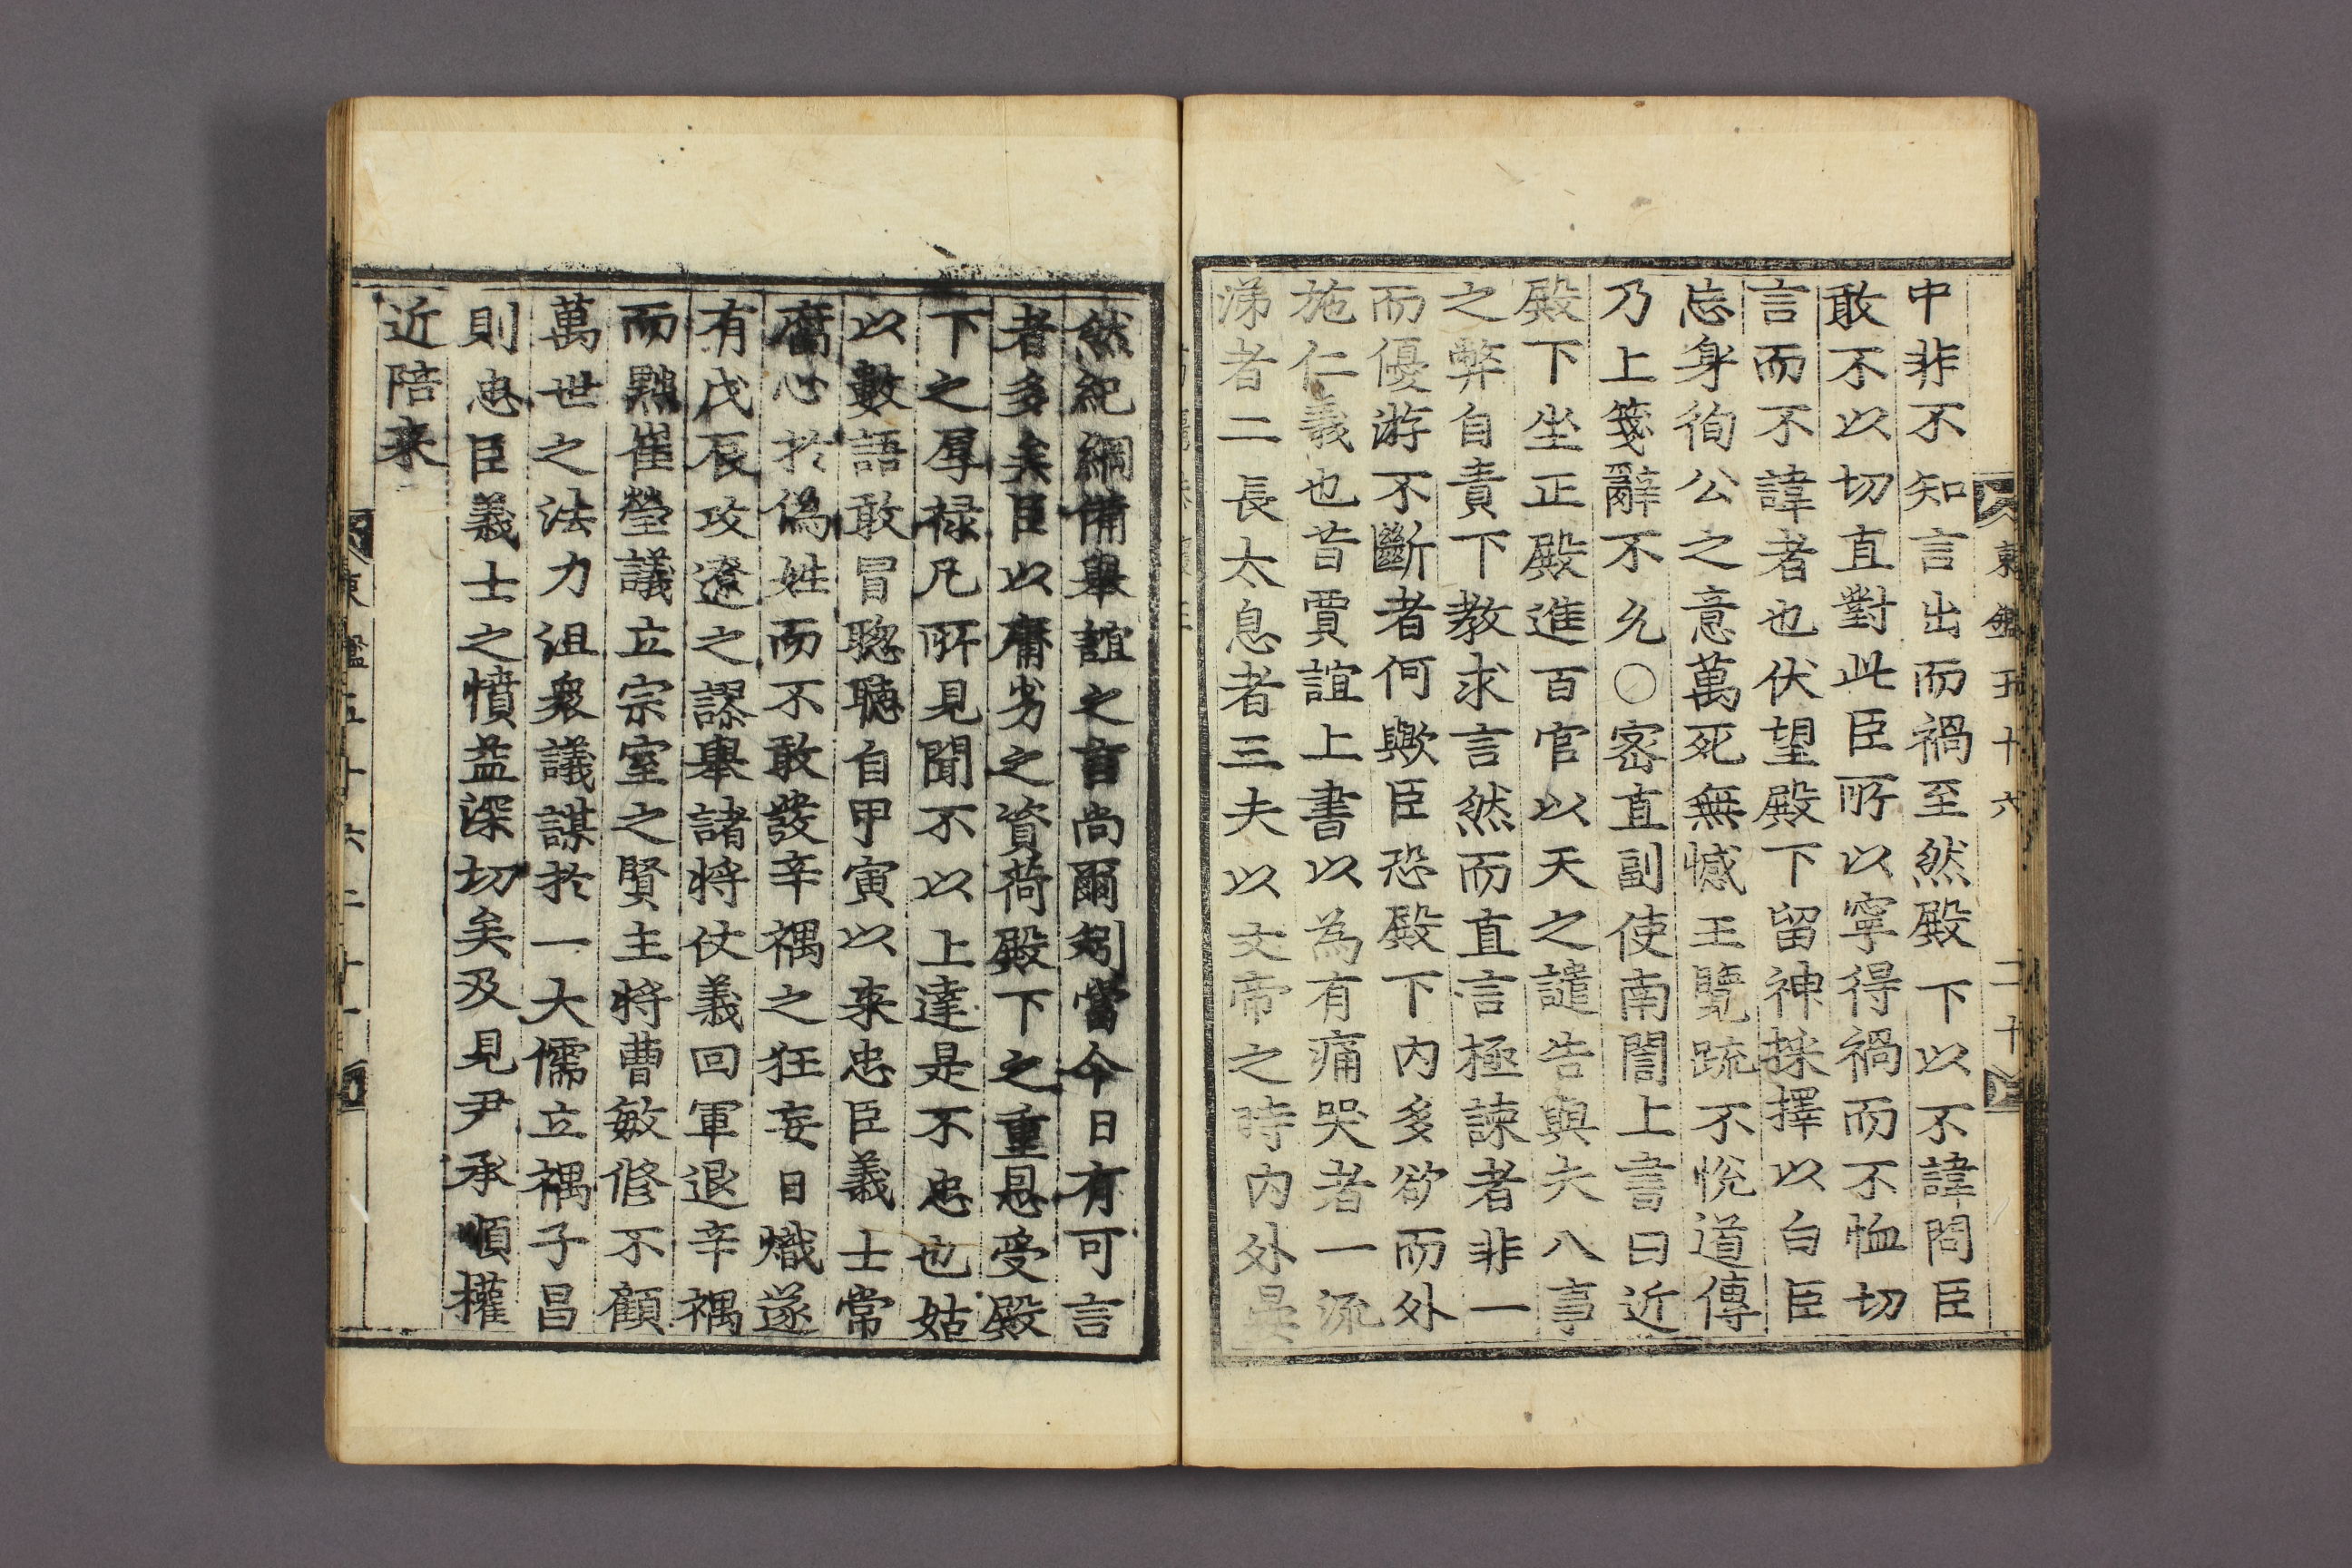 東鑑五十六 二十
中非不知言出而禍至然殿下以不諱問臣
敢不以切直對此臣所以寧得禍而不恤切
言而不諱者也伏望殿下留神採擇以白臣
忘身徇公之意萬死無憾王覽疏不悅道傳
乃上箋辭不允○密直副使南誾上書曰近
殿下坐正殿進百官以天之譴告與夫八事
之弊自責下敎求言然而直言極諫者非一
而優游不斷者何歟臣恐殿下內多欲而外
施仁義也昔賈誼上書以為有痛哭者一流
涕者二長太息者三夫以文帝之時內外晏
然紀綱備舉誼之言尚爾矧當今日有可言
者多矣臣以庸劣之資荷殿下之重恩受殿
下之厚祿凡所見聞不以上達是不忠也姑
以數語敢冒聦聽自甲寅以来忠臣義士常
腐心於偽姓而不敢發辛禑之狂妄日熾遂
有戊辰攻遼之謬舉諸將仗義回軍退辛禑
而黜崔瑩議立宗室之賢主將曹敏修不顧
萬世之法力沮衆議謀於一大儒立禑子昌
則忠臣義士之憤益深切矣及見尹承順權
近陪来
東鑑五十六 二十一